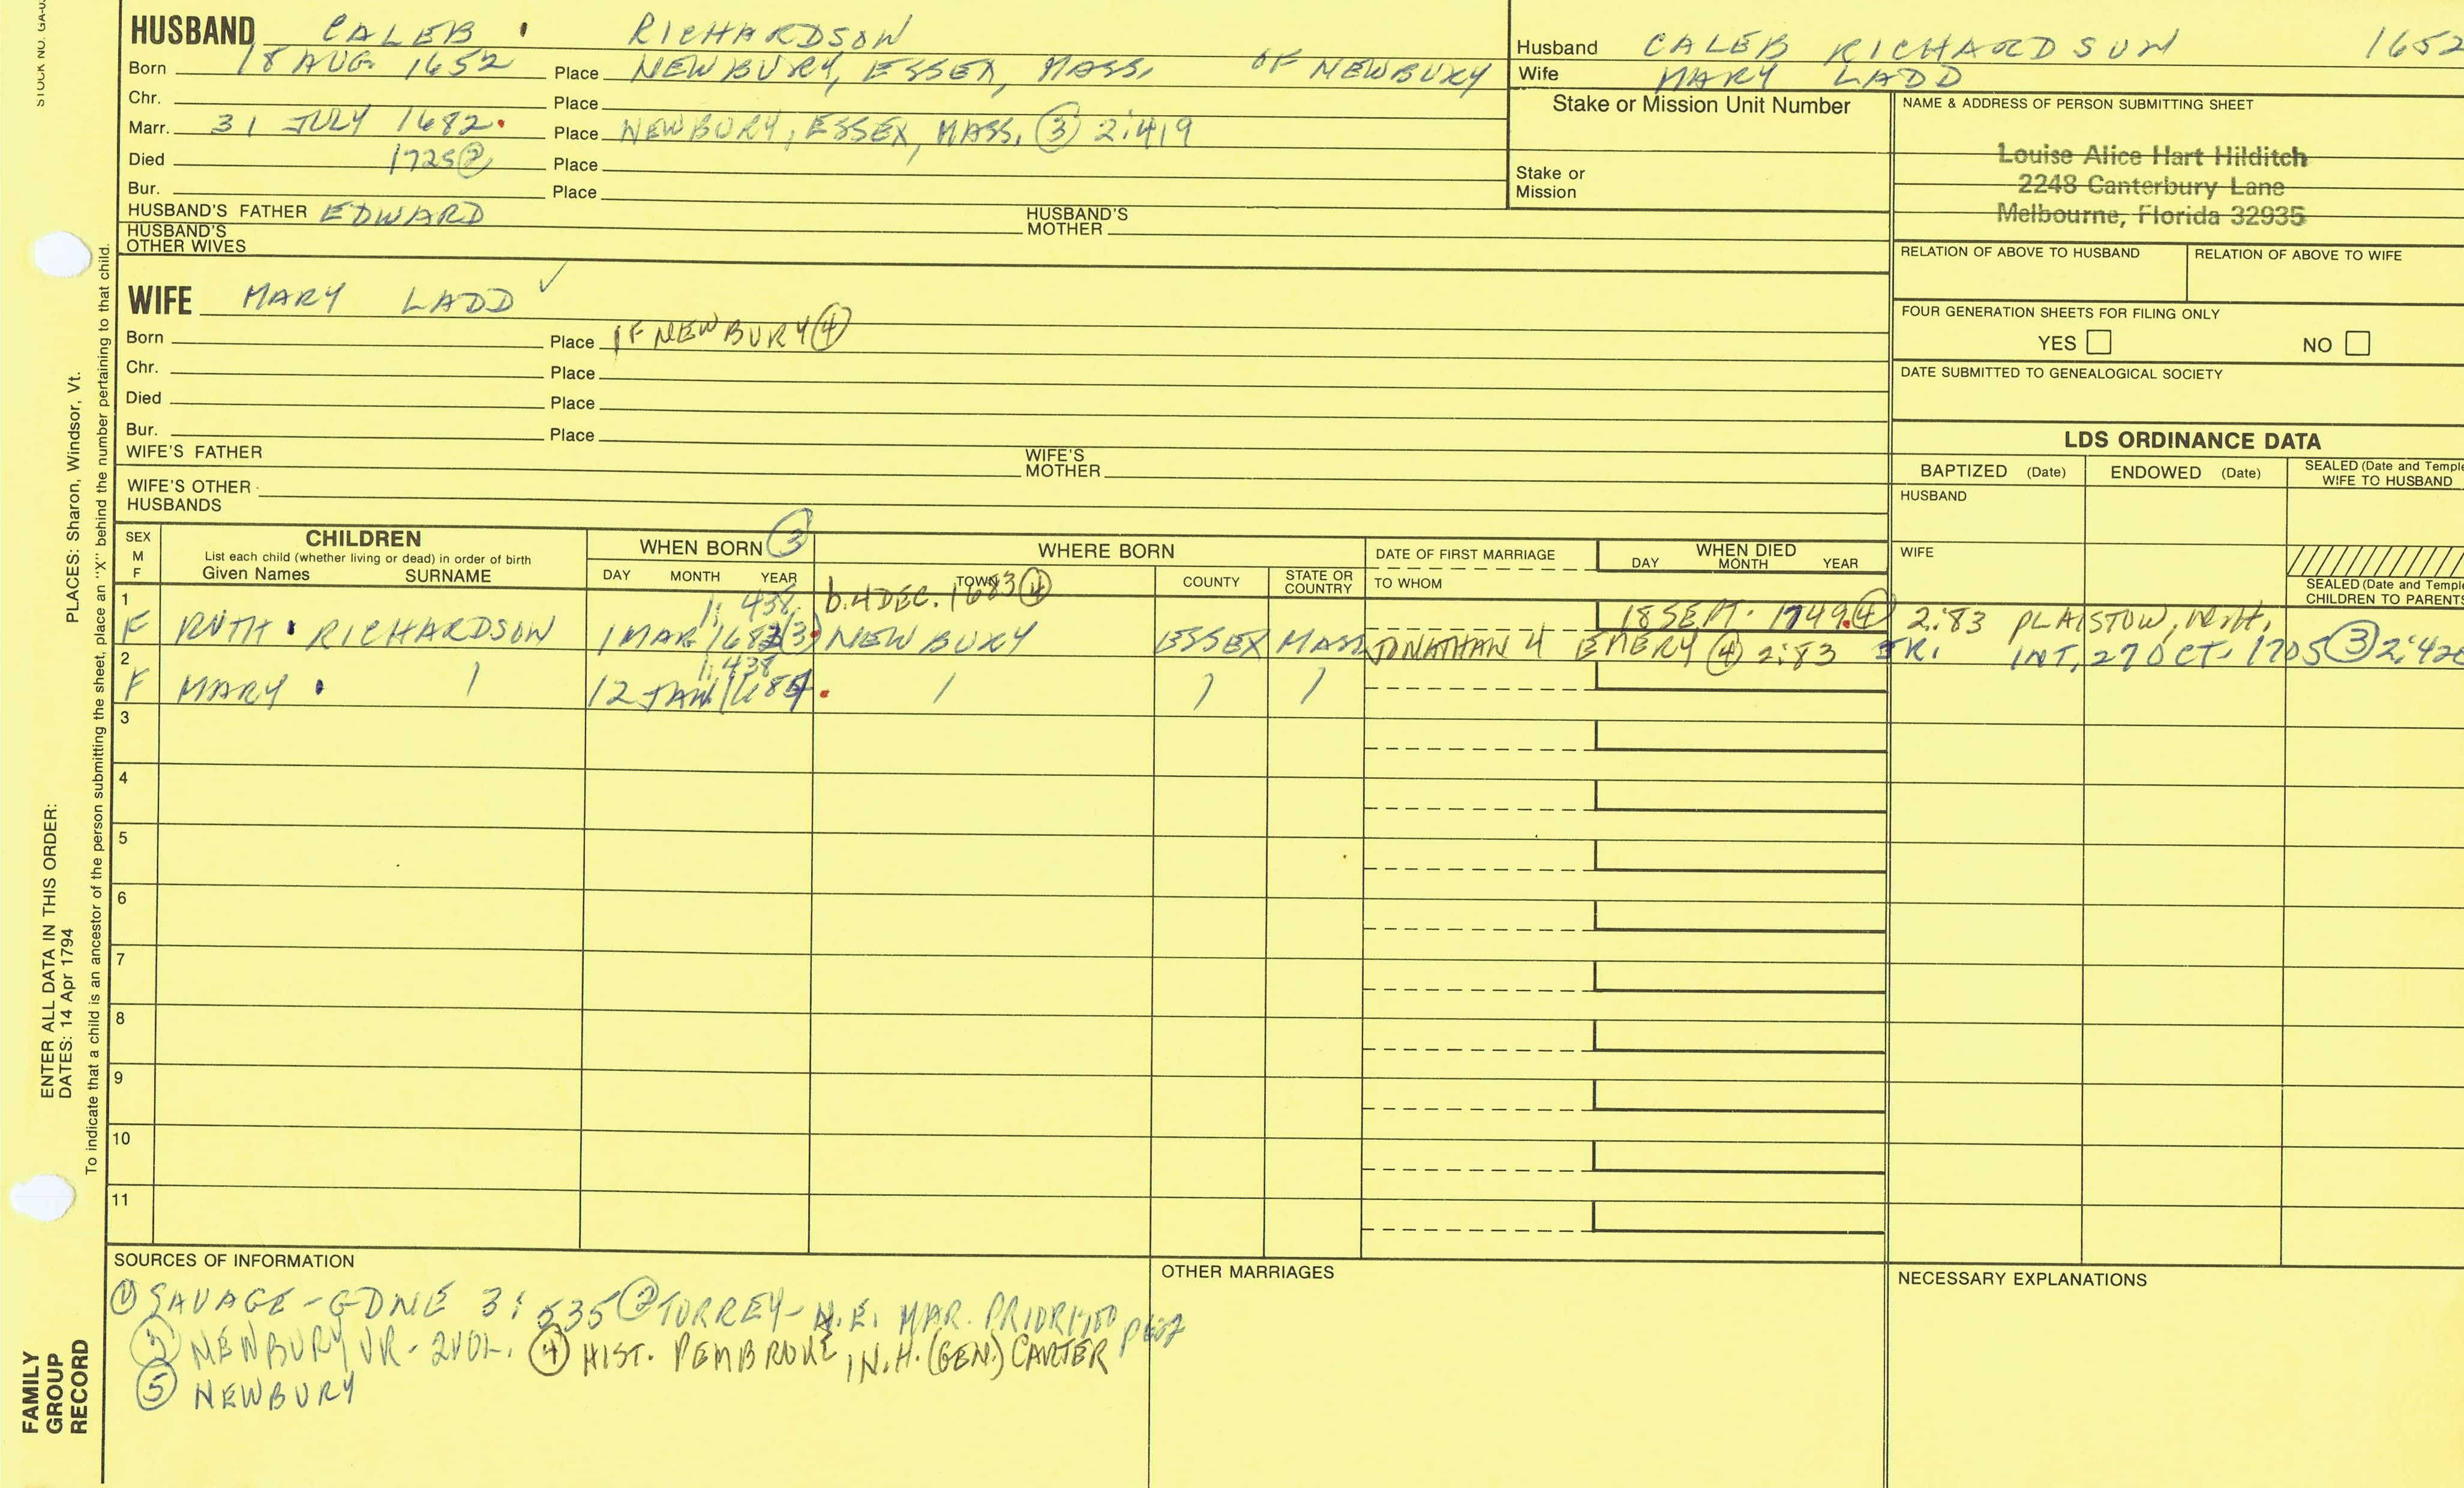 STOCK NO. GA-0
HUSBAND CALEB RICHARDSON
Born 18 AUG 1652 Place NEWBURY, ESSEX, MASS. OF NEWBURY
Chr. Place
Marr. 31 JULY 1682 Place NEWBURY, ESSEX, MASS. (3) 2:419
Died 1725 (2) Place
Bur. Place
HUSBAND'S FATHER EDWARD HUSBAND'S MOTHER
HUSBAND'S OTHER WIVES
WIFE MARY LADD ✓
Born Place OF NEWBURY (4)
Chr. Place
Died Place
Bur. Place
WIFE'S FATHER WIFE'S MOTHER
WIFE'S OTHER HUSBANDS
Husband CALEB RICHARDSON 1652
Wife MARY LADD
Stake or Mission Unit Number
Stake or Mission
NAME & ADDRESS OF PERSON SUBMITTING SHEET
Louise Alice Hart Hilditch
2248 Canterbury Lane
Melbourne, Florida 32935
RELATION OF ABOVE TO HUSBAND RELATION OF ABOVE TO WIFE
FOUR GENERATION SHEETS FOR FILING ONLY
YES NO
DATE SUBMITTED TO GENEALOGICAL SOCIETY
LDS ORDINANCE DATA
BAPTIZED (Date) ENDOWED (Date) SEALED (Date and Temple
WIFE TO HUSBAND
HUSBAND
WIFE
SEALED (Date and Temple
CHILDREN TO PARENTS
SEX M F
CHILDREN
List each child (whether living or dead) in order of birth
Given Names SURNAME
WHEN BORN (3)
DAY MONTH YEAR
WHERE BORN
TOWN COUNTY STATE OR COUNTRY
DATE OF FIRST MARRIAGE
TO WHOM
WHEN DIED
DAY MONTH YEAR
1 1:438 b. 4 DEC. 1683 (4) 18 SEPT. 1749 (4) 2:83 PLAISTOW, N.H.
F RUTH RICHARDSON 1 MAR NEWBURY ESSEX MASS JONATHAN 4 EMERY (4) 2:83 JR. INT. 27 OCT. 1705 (3) 2:420
2 1:438
F MARY 12 JAN
3
4
5
6
7
8
9
10
11
SOURCES OF INFORMATION
(1) SAVAGE - GDNE 3:535 (2) TORREY - N.E. MAR. PRIOR 1700 p607
(3) NEWBURY VR - 2 VOL. (4) HIST. PEMBROKE, N.H. (GEN.) CARTER
(5) NEWBURY
OTHER MARRIAGES
NECESSARY EXPLANATIONS
ENTER ALL DATA IN THIS ORDER:
DATES: 14 Apr 1794
PLACES: Sharon, Windsor, Vt.
To indicate that a child is an ancestor of the person submitting the sheet, place an "X" behind the number pertaining to that child.
FAMILY
GROUP
RECORD